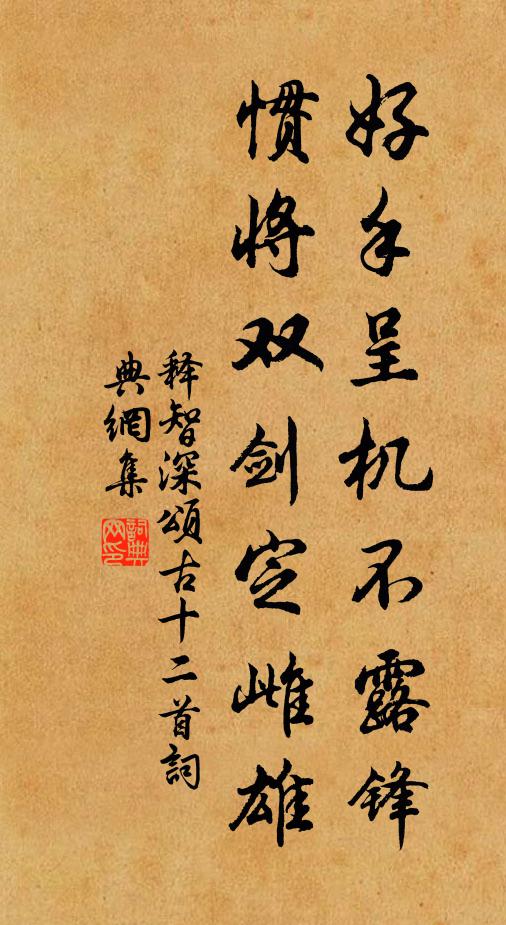 好手呈机不露锋
惯将双剑定雌雄
释智深頌古十二首詞
典網集
詞典
网印